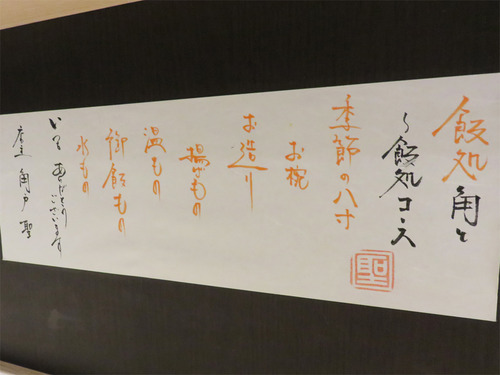 飯処 角と
〜飯処コース
季節の八寸
お椀
お造り
揚げもの
温もの
御飯もの
水もの
いつも ありがとう
ございます
店主 角戸 聖
聖